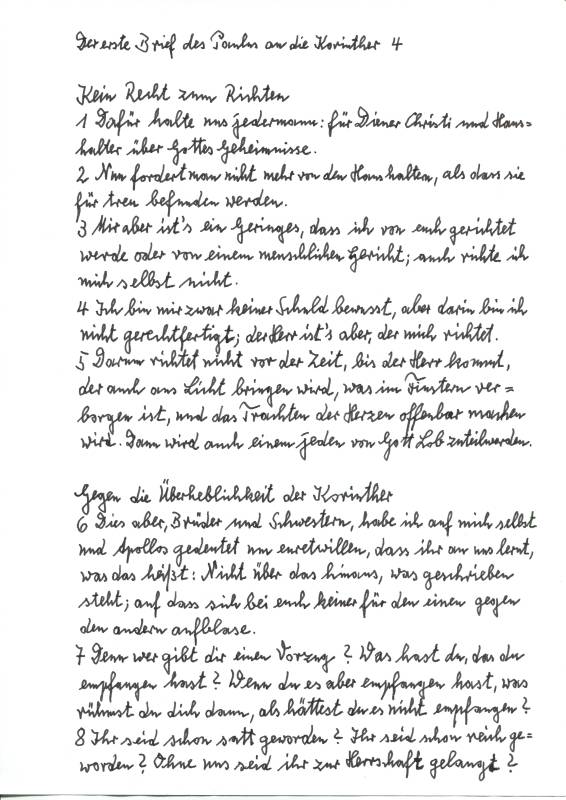 Der erste Brief des Paulus an die Korinther 4
Kein Recht zum Richten
1 Dafür halte uns jedermann: für Diener Christi und Haus=
halter über Gottes Geheimnisse.
2 Nun fordert man nicht mehr von den Haushaltern, als dass sie
für treu befunden werden.
3 Mir aber ist's ein Geringes, dass ich von euch gerichtet
werde oder von einem menschlichen Gericht; auch richte ich
mich selbst nicht.
4 Ich bin mir zwar keiner Schuld bewusst, aber darin bin ich
nicht gerechtfertigt; der Herr ist's aber, der mich richtet.
5 Darum richtet nicht vor der Zeit, bis der Herr kommt,
der auch ans Licht bringen wird, was im Finstern ver=
borgen ist, und das Trachten der Herzen offenbar machen
wird. Dann wird auch einem jeden von Gott Lob zuteilwerden.
Gegen die Überheblichkeit der Korinther
6 Dies aber, Brüder und Schwestern, habe ich auf mich selbst
und Apollos gedeutet um euretwillen, dass ihr an uns lernt,
was das heißt: Nicht über das hinaus, was geschrieben
steht; auf dass sich bei euch keiner für den einen gegen
den andern aufblase.
7 Denn wer gibt dir einen Vorzug? Was hast du, das du
empfangen hast? Wenn du es aber empfangen hast, was
rühmst du dich dann, als hättest du es nicht empfangen?
8 Ihr seid schon satt geworden? Ihr seid schon reich ge=
worden? Ohne uns seid ihr zur Herrschaft gelangt?